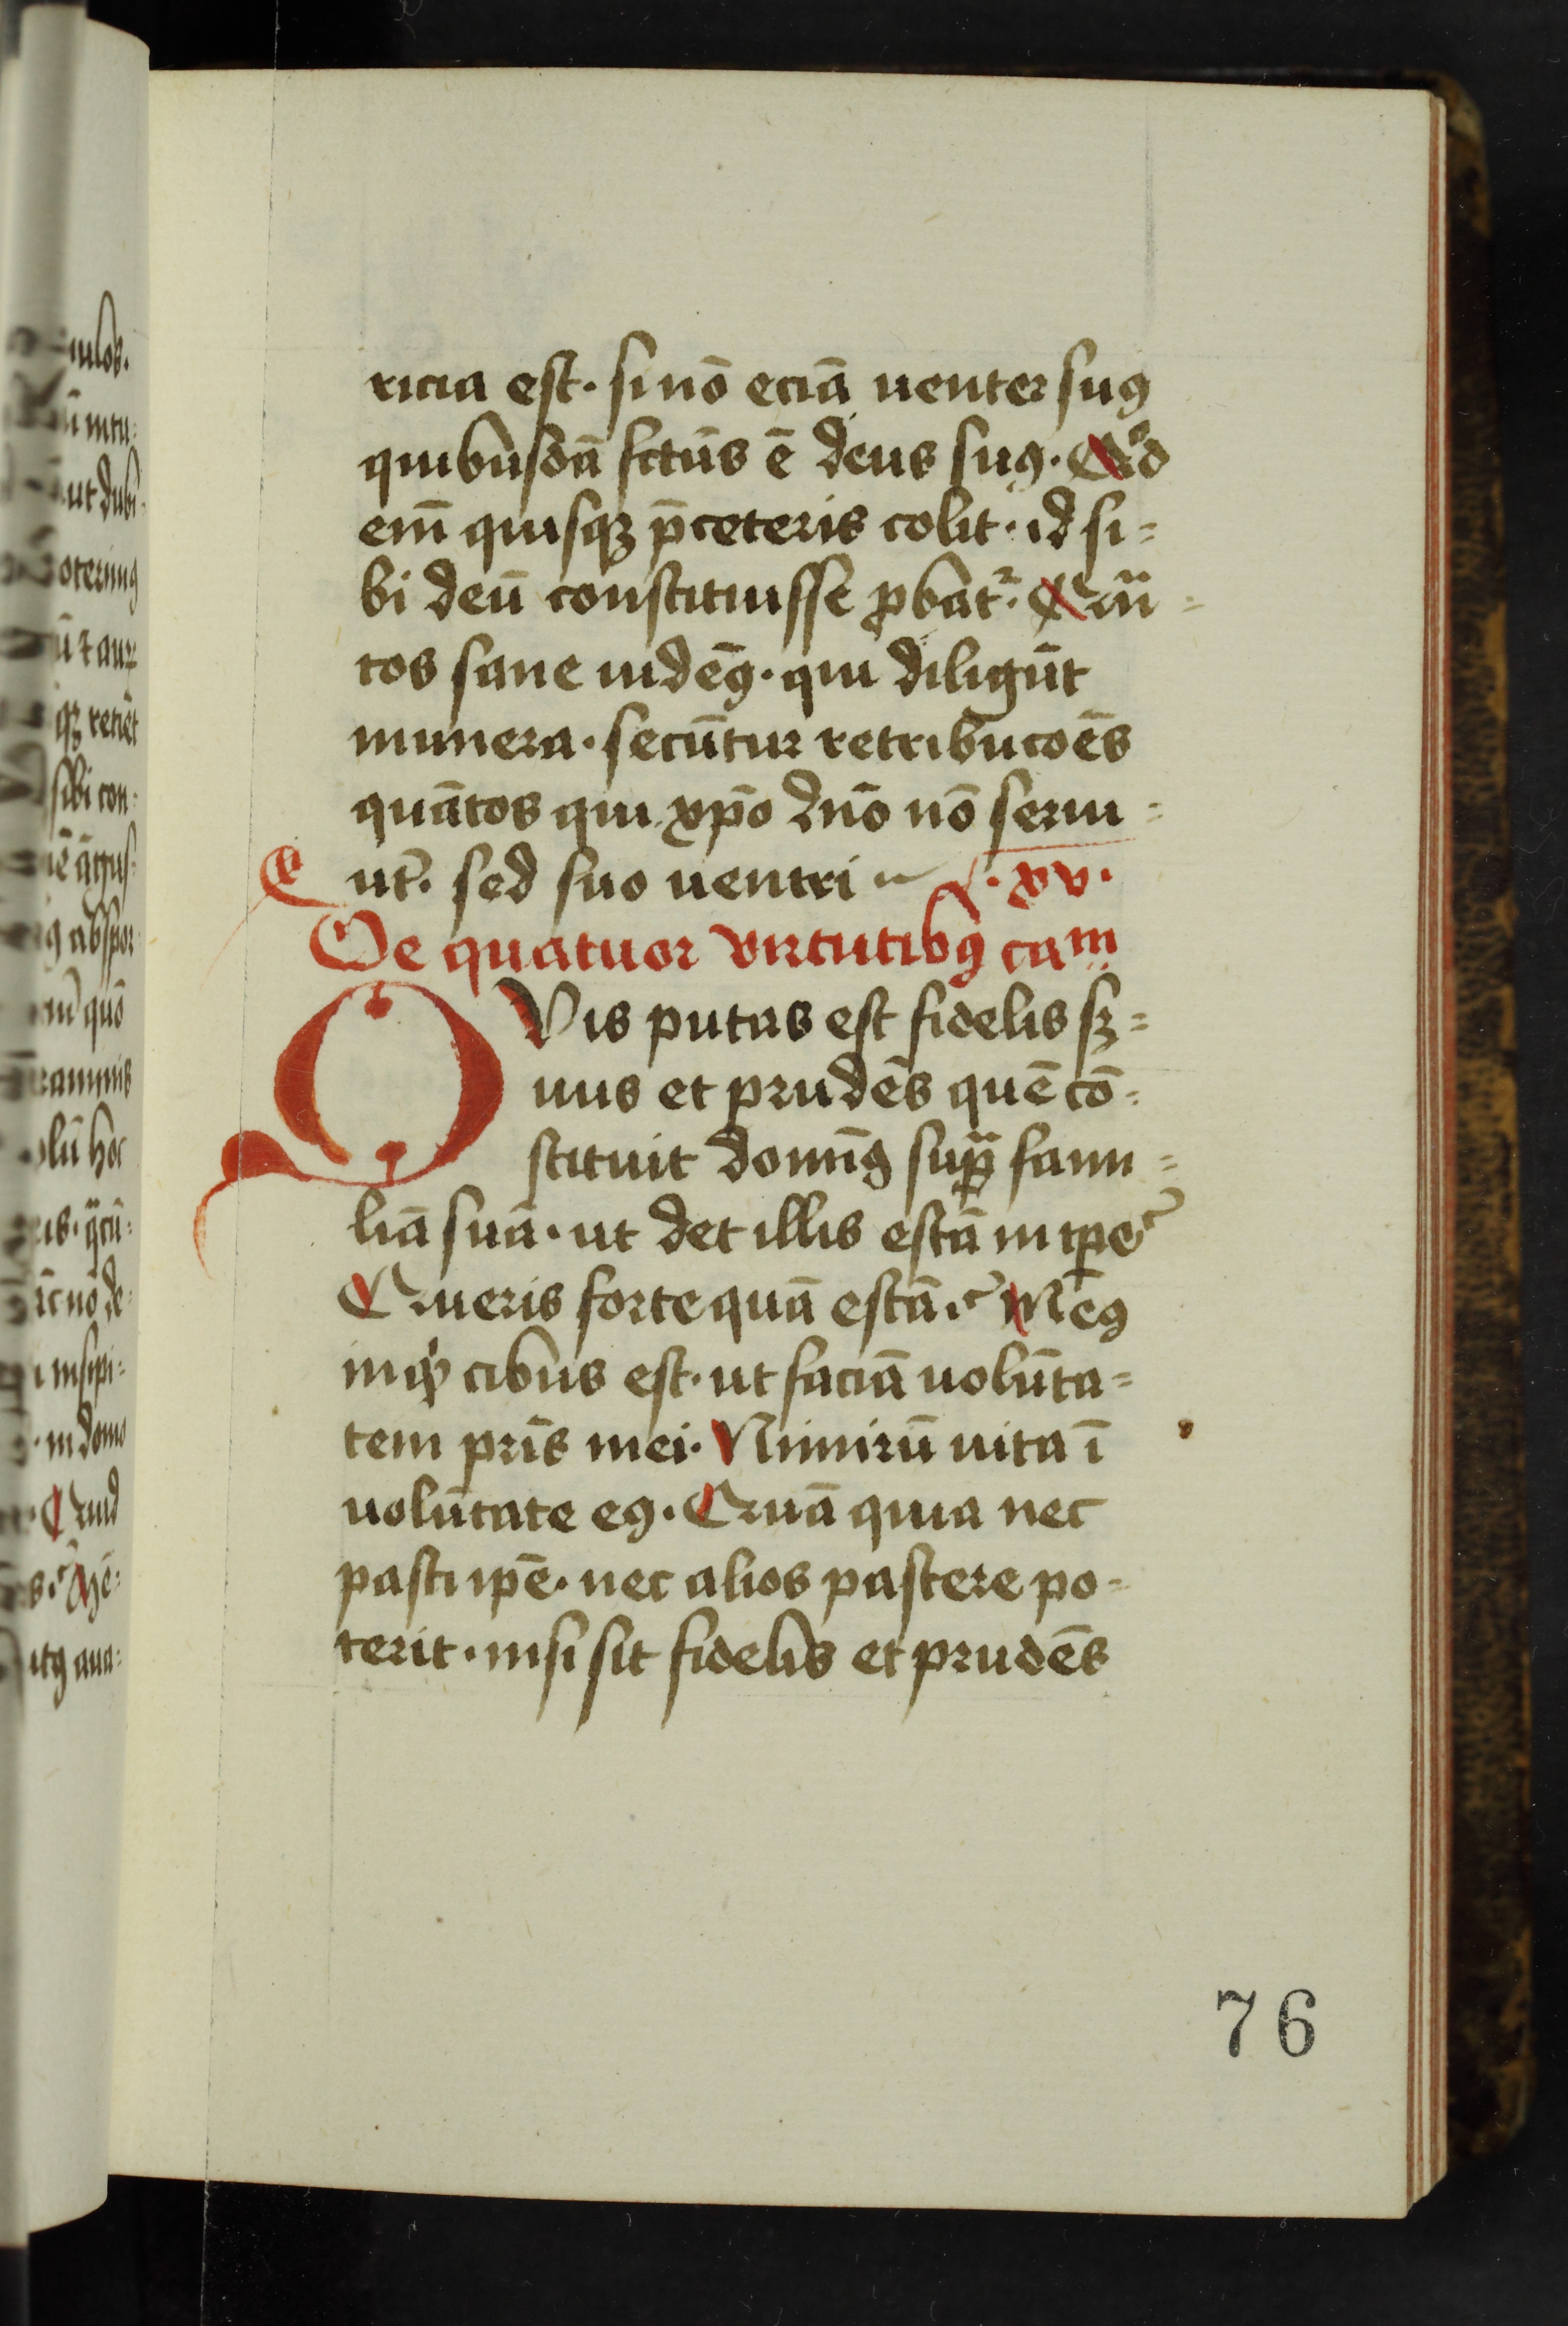 ricia est. si nō eciā uenter suꝯ
quibusdā fctūs ē deus suꝯ. Qd̕
em̄ quisqꝫ p̄ceteris colit. id si=
bi deū constituisse ꝓbat᷑. Quā=
tos sane uidēꝯ. qui diligūt
munera. secūntur retribucoēs
quātos qui xp̄o dn̄o nō serui=
ūt. sed suo uentri
.xv.
De quatuor virtutibꝯ cam
QVis putas est fidelis sꝫ=
uus et prudēs quē cō=
stituit domīꝯ sup̄ fami=
liā suā. ut det illis escā in tp̄e
Queris forte quā escā. Meꝯ
inqͥ cibus est. ut faciā uolūta=
tem pr̄is mei. Nimirū uita ī
uolūtate eꝯ. Quā quia nec
pasci ip̄e. nec alios pascere po=
terit. nisi sit fidelis et prudēs
76